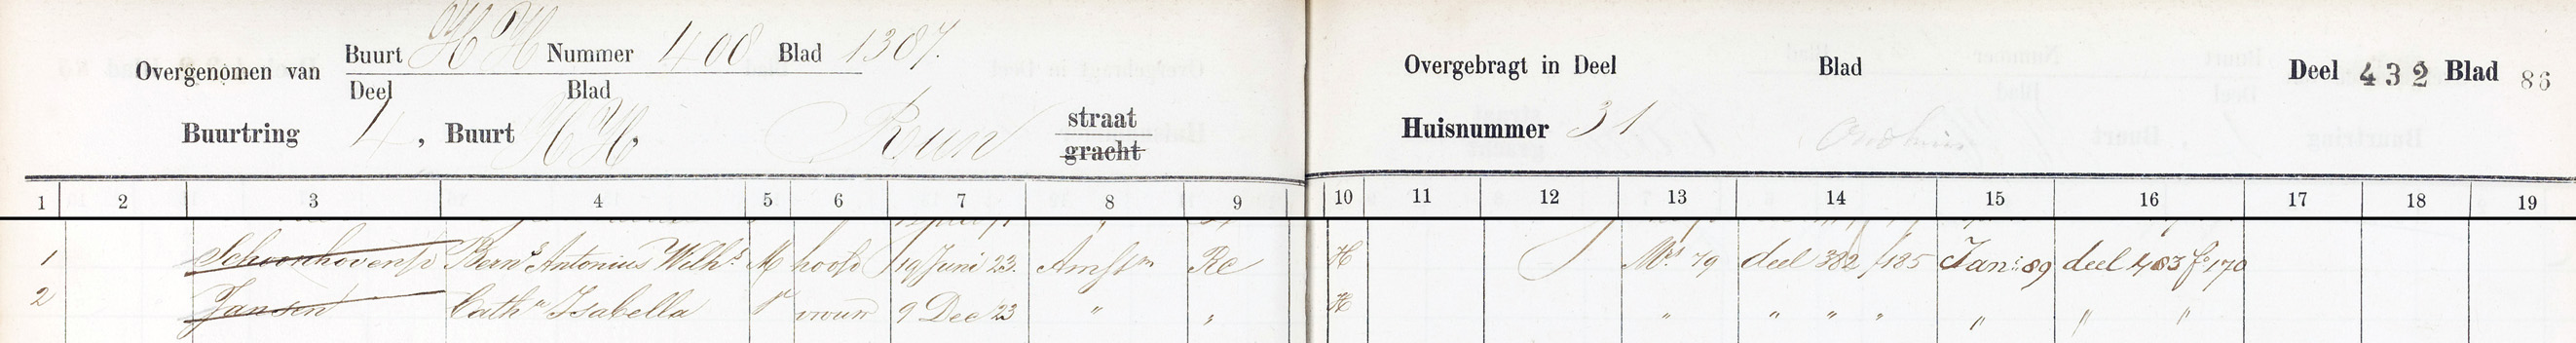 Overgenomen van Buurt HH Nummer 400 Blad 1387.
Deel Blad
Buurtring 4, Buurt HH. straat
gracht
Overgebragt in Deel Blad Deel 432 Blad 86
Huisnummer 31
1 2 3 4 5 6 7 8 9 10 11 12 13 14 15 16 17 18 19
1 Schoonhoven Berns Antonius Wilhs M hoofd 19 Juni 23. Amstm Rc H Mrt 79 deel 382 f185 Jan: 89 deel 483 fo 170
2 Jansen Cathn Isabella Vr vrouw 9 Dec 23 " " H " " " " " " "